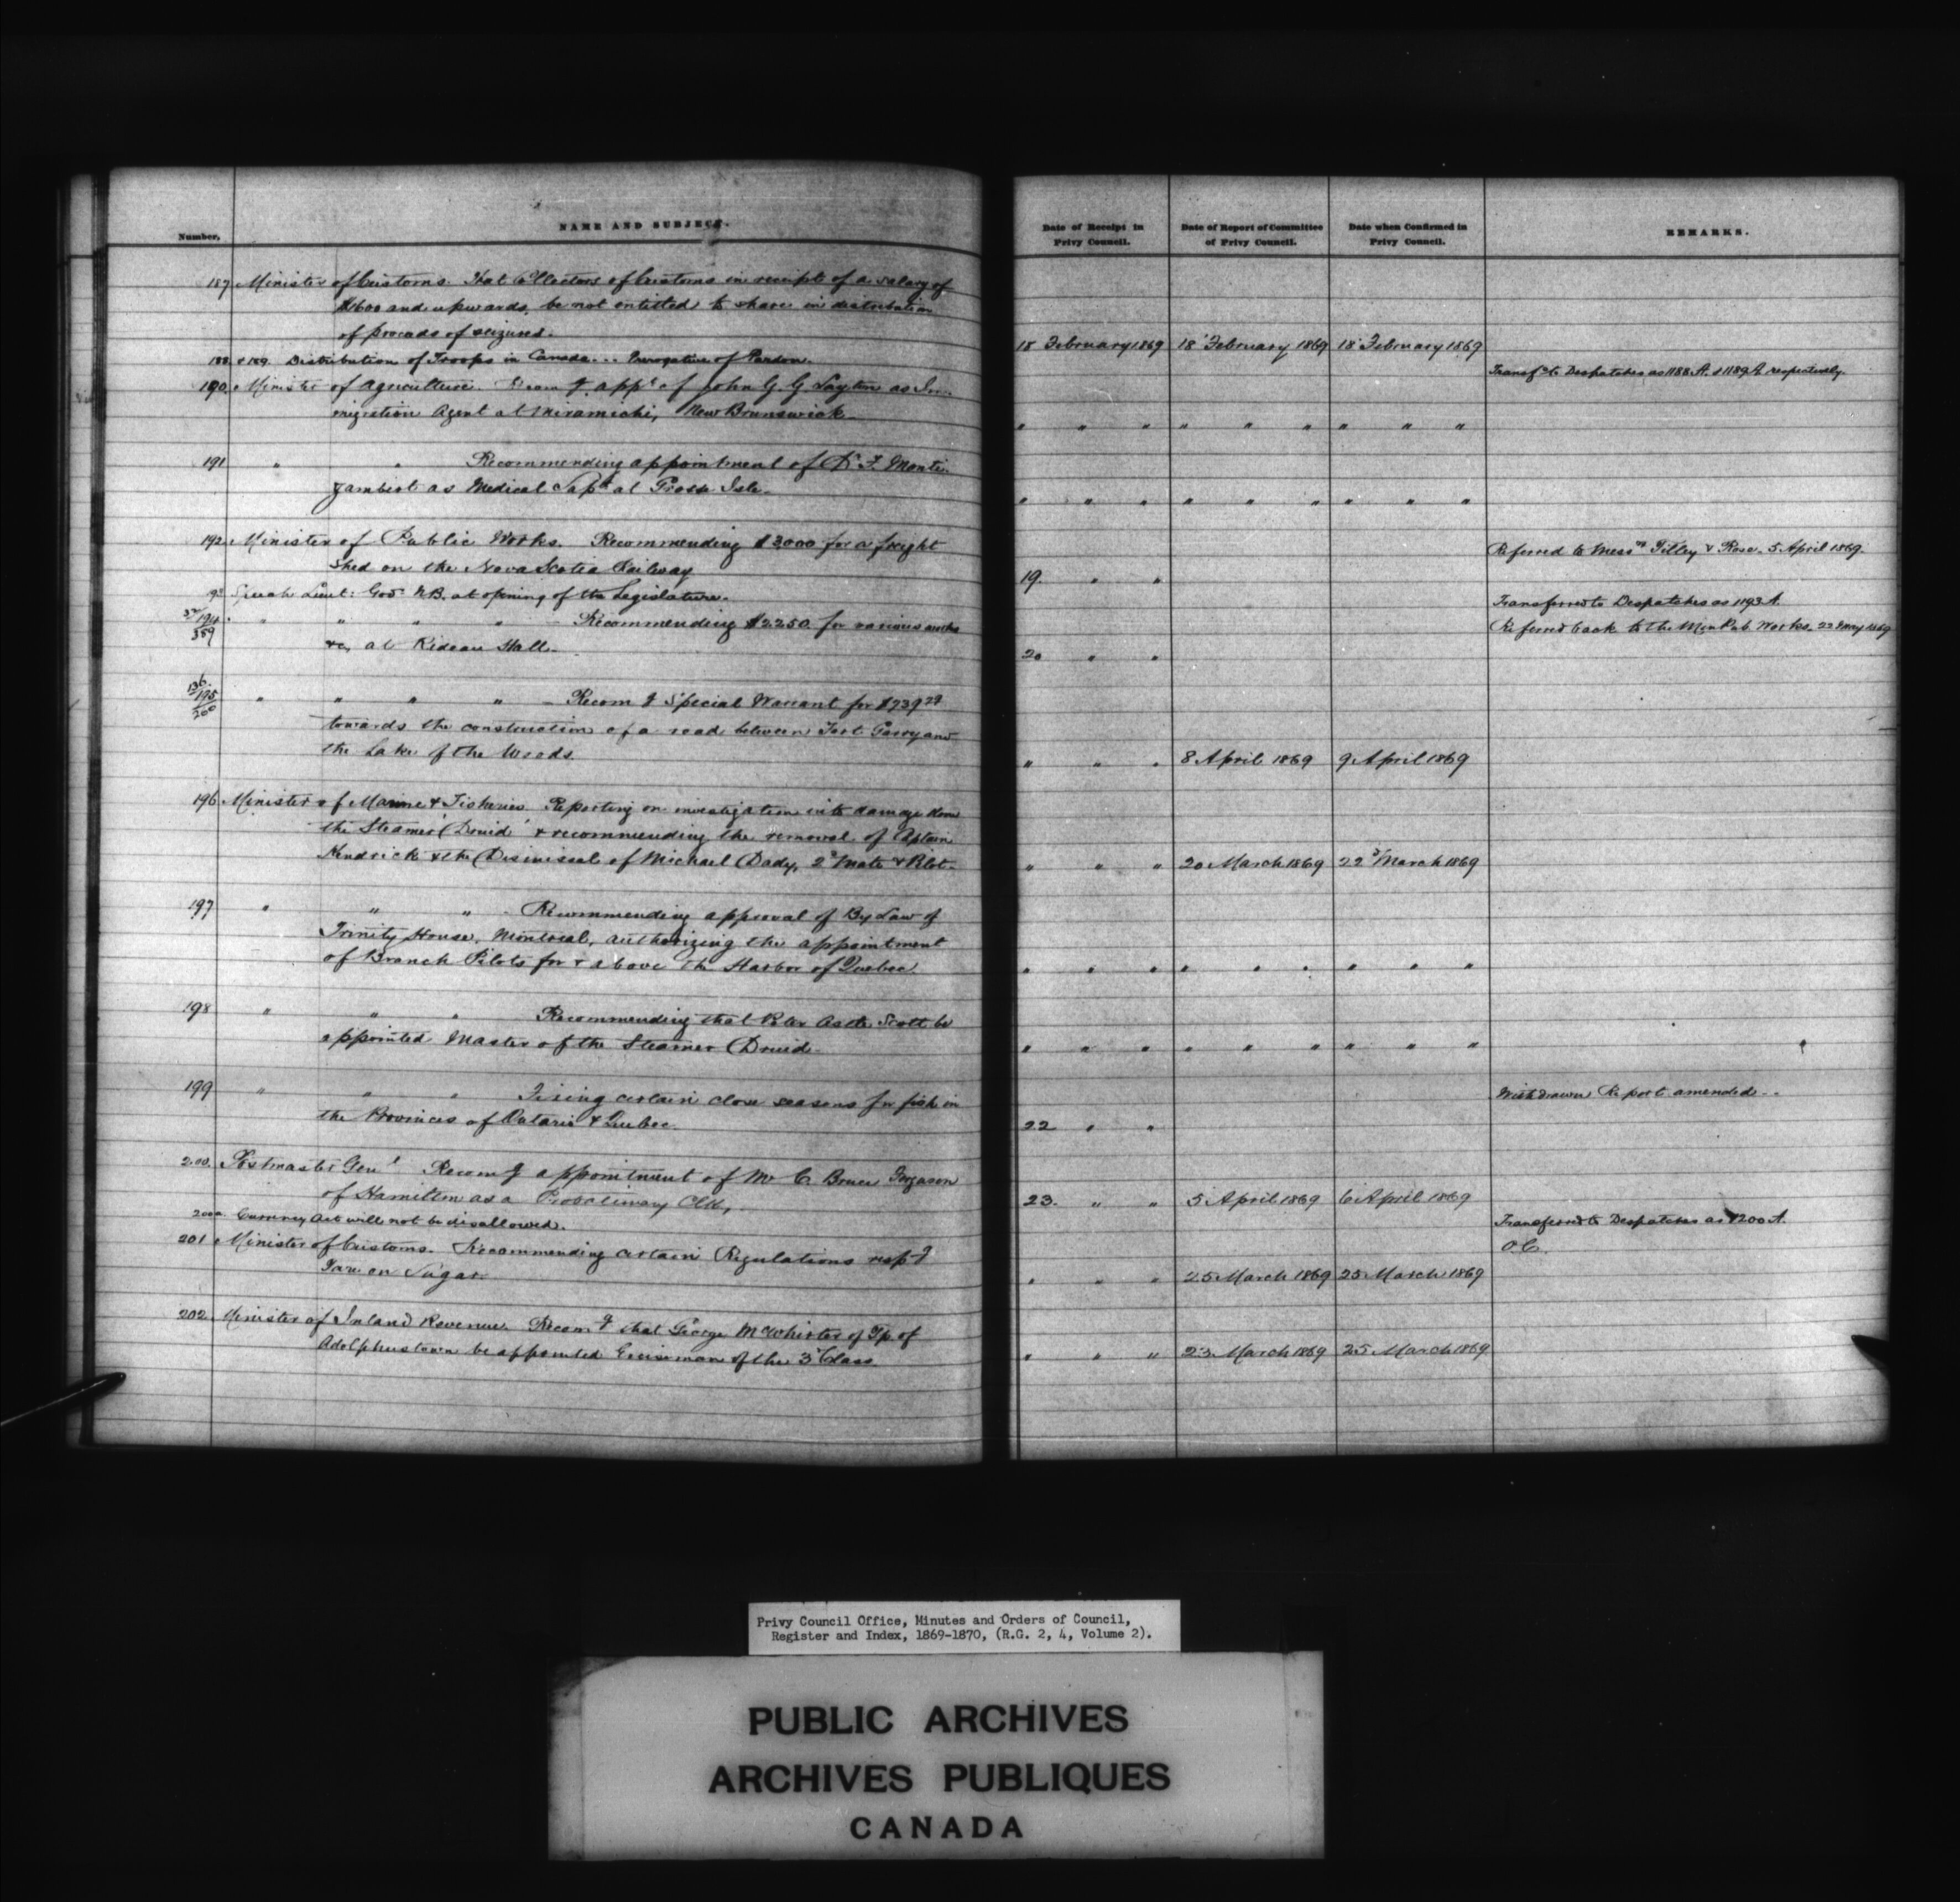 Number.
NAME AND SUBJECT.
Date of Receipt in Privy Council.
Date of Report of Committee of Privy Council.
Date when Confirmed in Privy Council.
REMARKS.
187 Minister of Customs. That Collectors of Customs in receipt of a salary of
$1600 and upwards, be not entitled to share in distribution
of proceeds of seizures.
18 February 1869 18 February 1869 18 February 1869
188 & 189. Distribution of Troops in Canada... Prerogative of Pardon.
Transfd to Despatches as 1188 A. & 1189 A. respectively.
190. Minister of Agriculture. Recomg appt of John G. G. Layton as Im-
migration Agent at Miramichi, New Brunswick
" " " " " " " " "
191 " " Recommending appointment of Dr F. Monti-
zambert as Medical Supt at Grosse Isle
" " " " " " " " "
192. Minister of Public Works. Recommending $3000 for a freight
shed on the Nova Scotia Railway
Referred to Messrs Tilley & Rose. 5 April 1869.
19. " "
93 Speech Lieut: Govr N.B. at opening of the Legislature.
Transferred to Despatches as 1193 A.
194 389 " " " " Recommending $2250 for various works
&c, at Rideau Hall.
Referred back to the Min Pub Works. 22 May 1869
20 " "
136. 195 200 " " " " Recomg Special Warrant for $739
towards the construction of a road between Fort Garry and
the Lake of the Woods.
" " " 8 April 1869 9 April 1869
196 Minister of Marine & Fisheries. Reporting on investigation into damage done
the Steamer 'Druid' & recommending the removal of Captain
Kendrick & the Dismissal of Michael Dady, 2d Mate & Pilot.
" " " 20 March 1869 22d March 1869
197 " " " Recommending approval of By Law of
Trinity House, Montreal, authorizing the appointment
of Branch Pilots for & above the Harbor of Quebec.
" " " " " " " " "
198 " " " Recommending that Peter Scott be
appointed Master of the Steamer Druid.
" " " " " " " " "
199 " " " Fixing certain close seasons for fish in
the Provinces of Ontario & Quebec.
Withdrawn Report amended
22 " "
200. Postmaster Genl Recomg appointment of Mr C. Bruce Ferguson
of Hamilton as a Probationary Clk,
23. " " 5 April 1869 6 April 1869
200a. Currency Act will not be disallowed.
Transferred to Despatches as 1200 A.
201 Minister of Customs. Recommending certain Regulations respg
Tare on Sugar.
O.C.
" " " 25 March 1869 25 March 1869
202. Minister of Inland Revenue. Recomg that George McWhirter of Tp. of
Adolphustown be appointed Exciseman of the 3d Class
" " " 23 March 1869 25 March 1869
Privy Council Office, Minutes and Orders of Council,
Register and Index, 1869-1870, (R.G. 2, 4, Volume 2).
PUBLIC ARCHIVES
ARCHIVES PUBLIQUES
CANADA